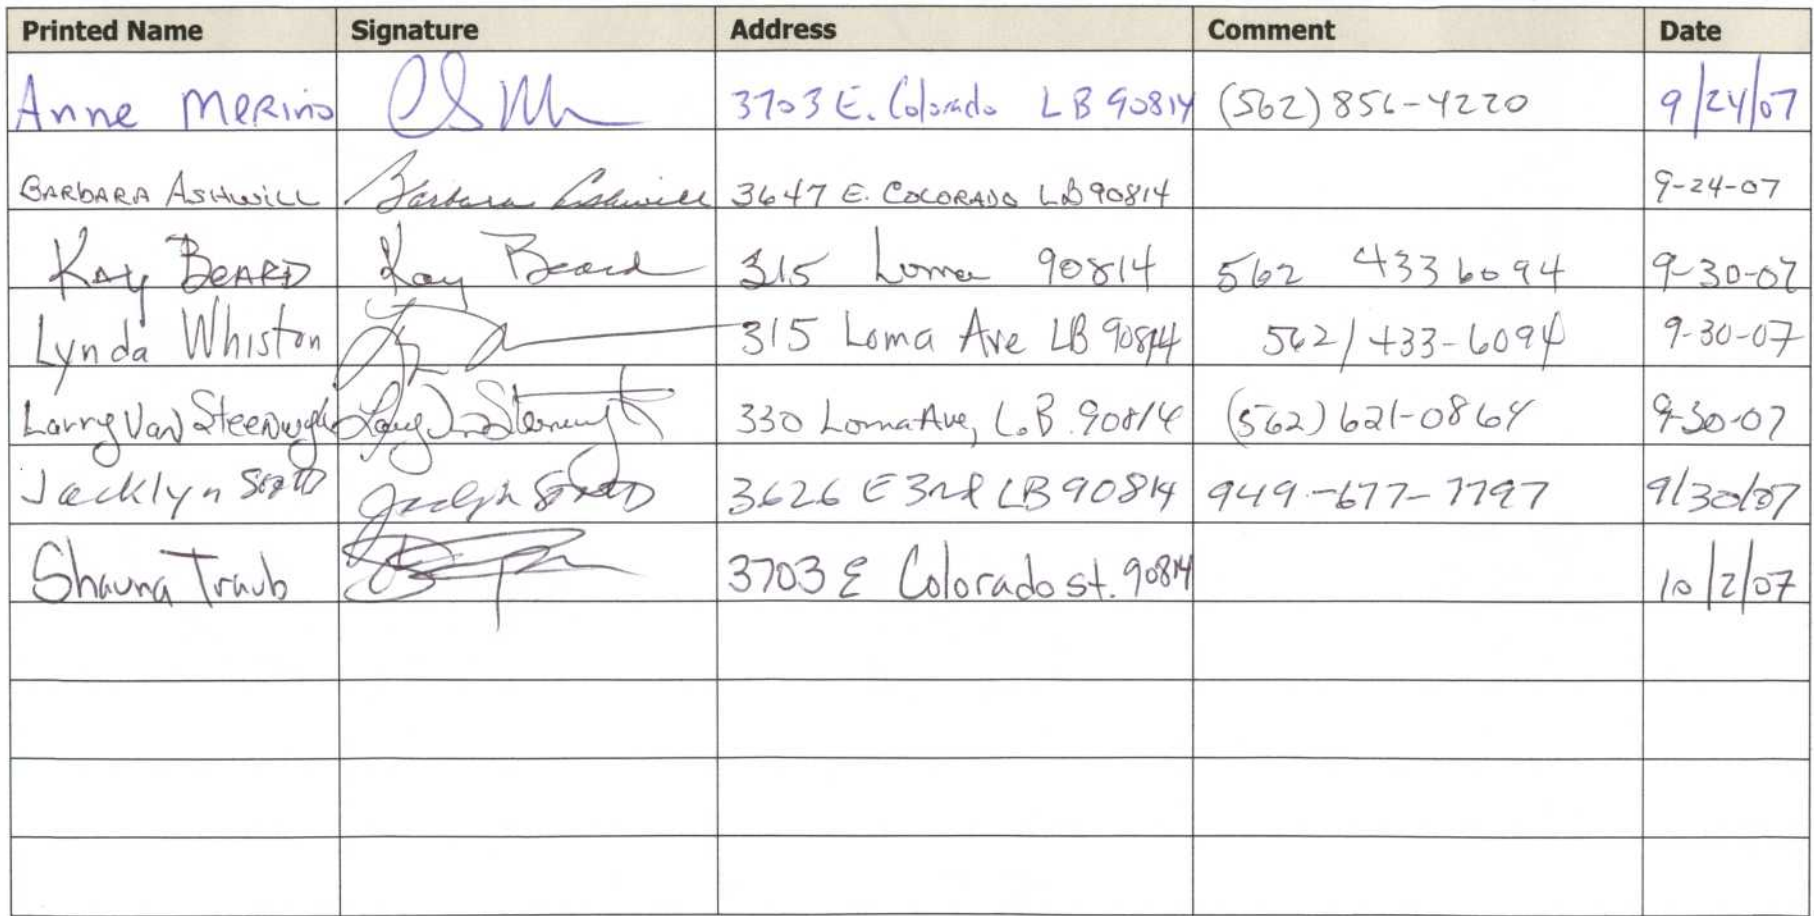 Printed Name Signature Address Comment Date
Anne Merino 3703 E. Colorado LB 90814 (562) 856-4220 9/24/07
BARBARA ASHWILL Barbara Ashwill 3647 E. COLORADO LB 90814 9-24-07
KAY BEARD Kay Beard 315 Loma 90814 562 433 6094 9-30-07
Lynda Whiston 315 Loma Ave LB 90814 562/433-6094 9-30-07
Larry Van Steenwyk 330 Loma Ave, L.B. 90814 (562) 621-0864 9-30-07
Jacklyn Scott 3626 E 3rd LB 90814 949-677-7797 9/30/07
Shauna Traub 3703 E Colorado st. 90814 10/2/07